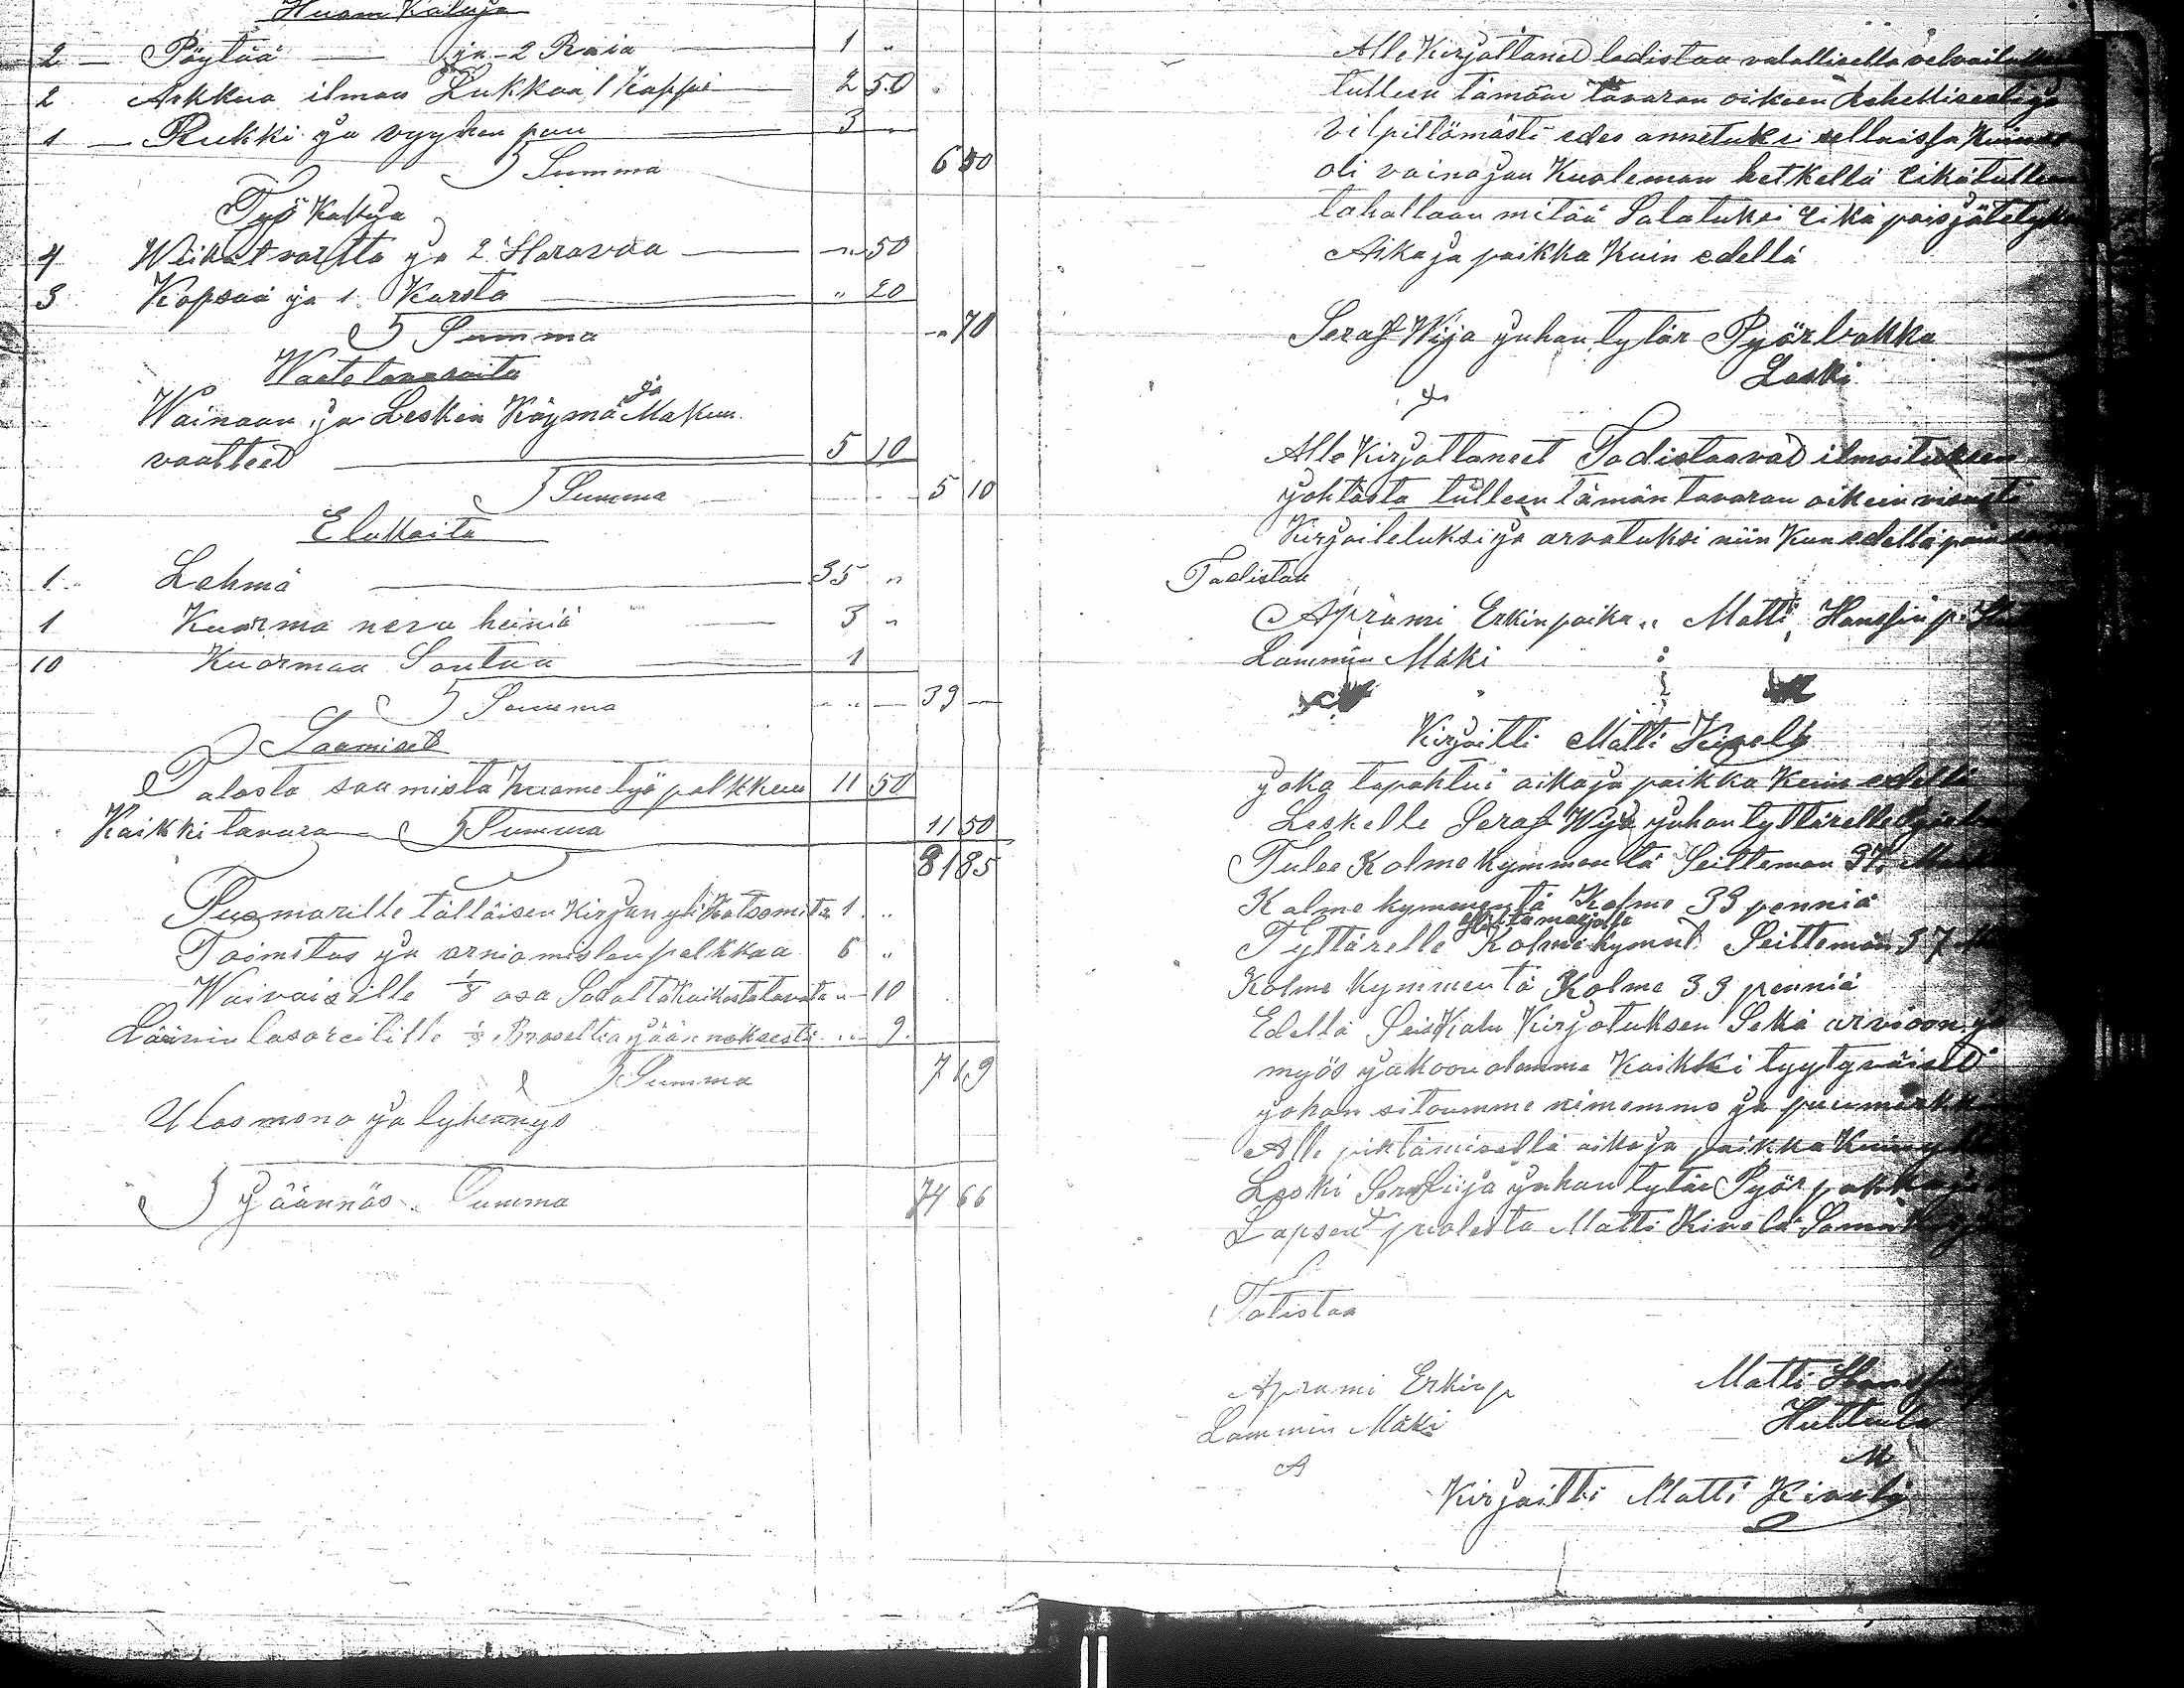 Huone Kaluja
2 — Pöytää — ja 2 Raia — 1 "
2 Arkkua ilman Lukkua 1 Kappi — 2 50
1 — Rukki ja vyyhen puu — 3 —
Summa 6 50
Työ Kaluja
4 Wiikat vartta ja 2 Haravaa — " 50
3 Kapsaa ja 1 Karsta — " 20
Summa — " 70
Waate tavaroita
Wainaan ja Leskin Käymä ja Makuu
vaatteed — 5 10
Summa — 5 10
Elukoita
1 Lehmä — 35 "
1 Kuorma neva heiniä — 3 "
10 Kuormaa Sontaa — 1
Summa — 39 —
Saamiset
Talosta saamista huone työ palkkaa 11 50
Kaikki tavara — Summa 11 50
81 85
Tuomarille tälläisen Kirjan yli Katsomista 1 "
Toimitus ja arviomislen palkkaa 6 "
Waivaisille 1/8 osa Sadalta Kaikasta tavarata " 10
Läänin lasareitille 1/8 Proseltia jäännöksestä " 9
Summa 7 19
Ulos meno ja lyhennys
Jäännös Summa 74 66
Alle Kirjottaned todistaa valallisella velvoituksella
tulleen tämän tavaran oikeen Rehellisesti ja
vilpittömästi edes annetuksi sellaissa Kuin se
oli vainajan Kuoleman hetkellä eikä tullen
tahallaan mitää Salatuksi eikä pois jätetyksi
Aika ja paikka Kuin edellä
Seraf Wija juhan tytär Pyörbakka
Leski
Alle Kirjottaneet Todistaavad ilmoituksen
johtosta tulleen tämän tavaran oikein
Kirjoiteluksi ja arvatuksi niin Kun edellä
Todistaa
Aprami Erkin poika " Matti Hanssin p.
Lammin Mäki
Kirjoitti Matti Kivelä
joka tapahtui aika ja paikka Kuin edellä
Leskelle Seraf Wija juhan tyttärelle
Tulee Kolme kymmentä Seitteman 37.
Kolme kymmentä Kolme 33 penniä
Hilta marjalle
Tyttärelle Kolme kymnt Seittemän 37
Kolme kymmentä Kolme 33 penniä
Edellä Seisovalu Kirjotuksen Sekä arvioon ja
myös jakoon olemme Kaikki tyytyväised
johon sitoumme nimemme ja puumerkki
Alle piirtämisellä aika ja paikka Kuin
Leski Serafiija juhan tytär Pyör pakka ja
Lapsen puolesta Matti Kivelä
Totistaa
Aprami Erkin p
Matti
Lammin Mäki
Huttula
A
M
Kirjoitti Matti Kivelä